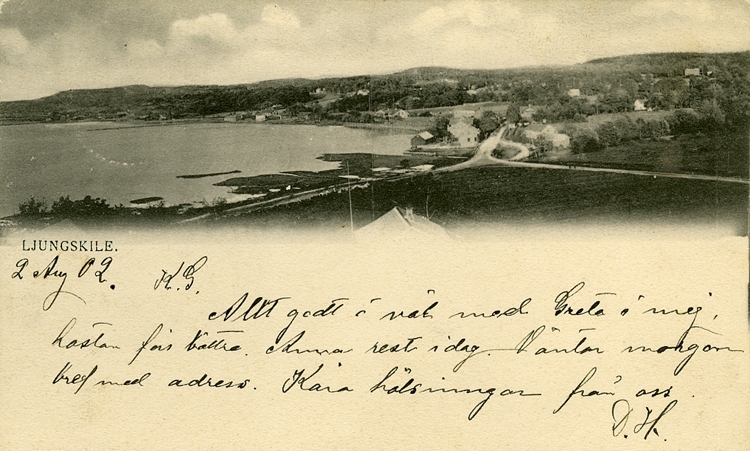 LJUNGSKILE.
2 Aug 02. K.G.
Allt godt o väl med Greta o mej,
hostan förbättra. Anna rest idag. Väntar morgon
bref med adress. Kära hälsningar från oss.
D. H.